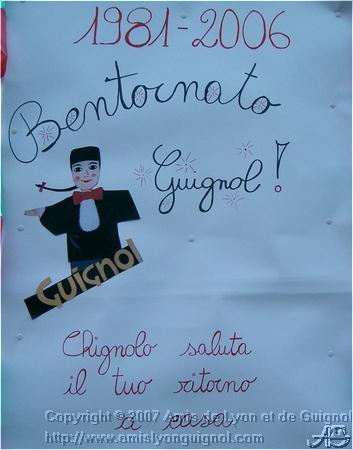 1981-2006
Bentornato
Guignol!
Guignol
Chignolo saluta
il tuo ritorno
a casa
Copyright © 2007 Amis de Lyon et de Guignol
http://www.amislyonguignol.com